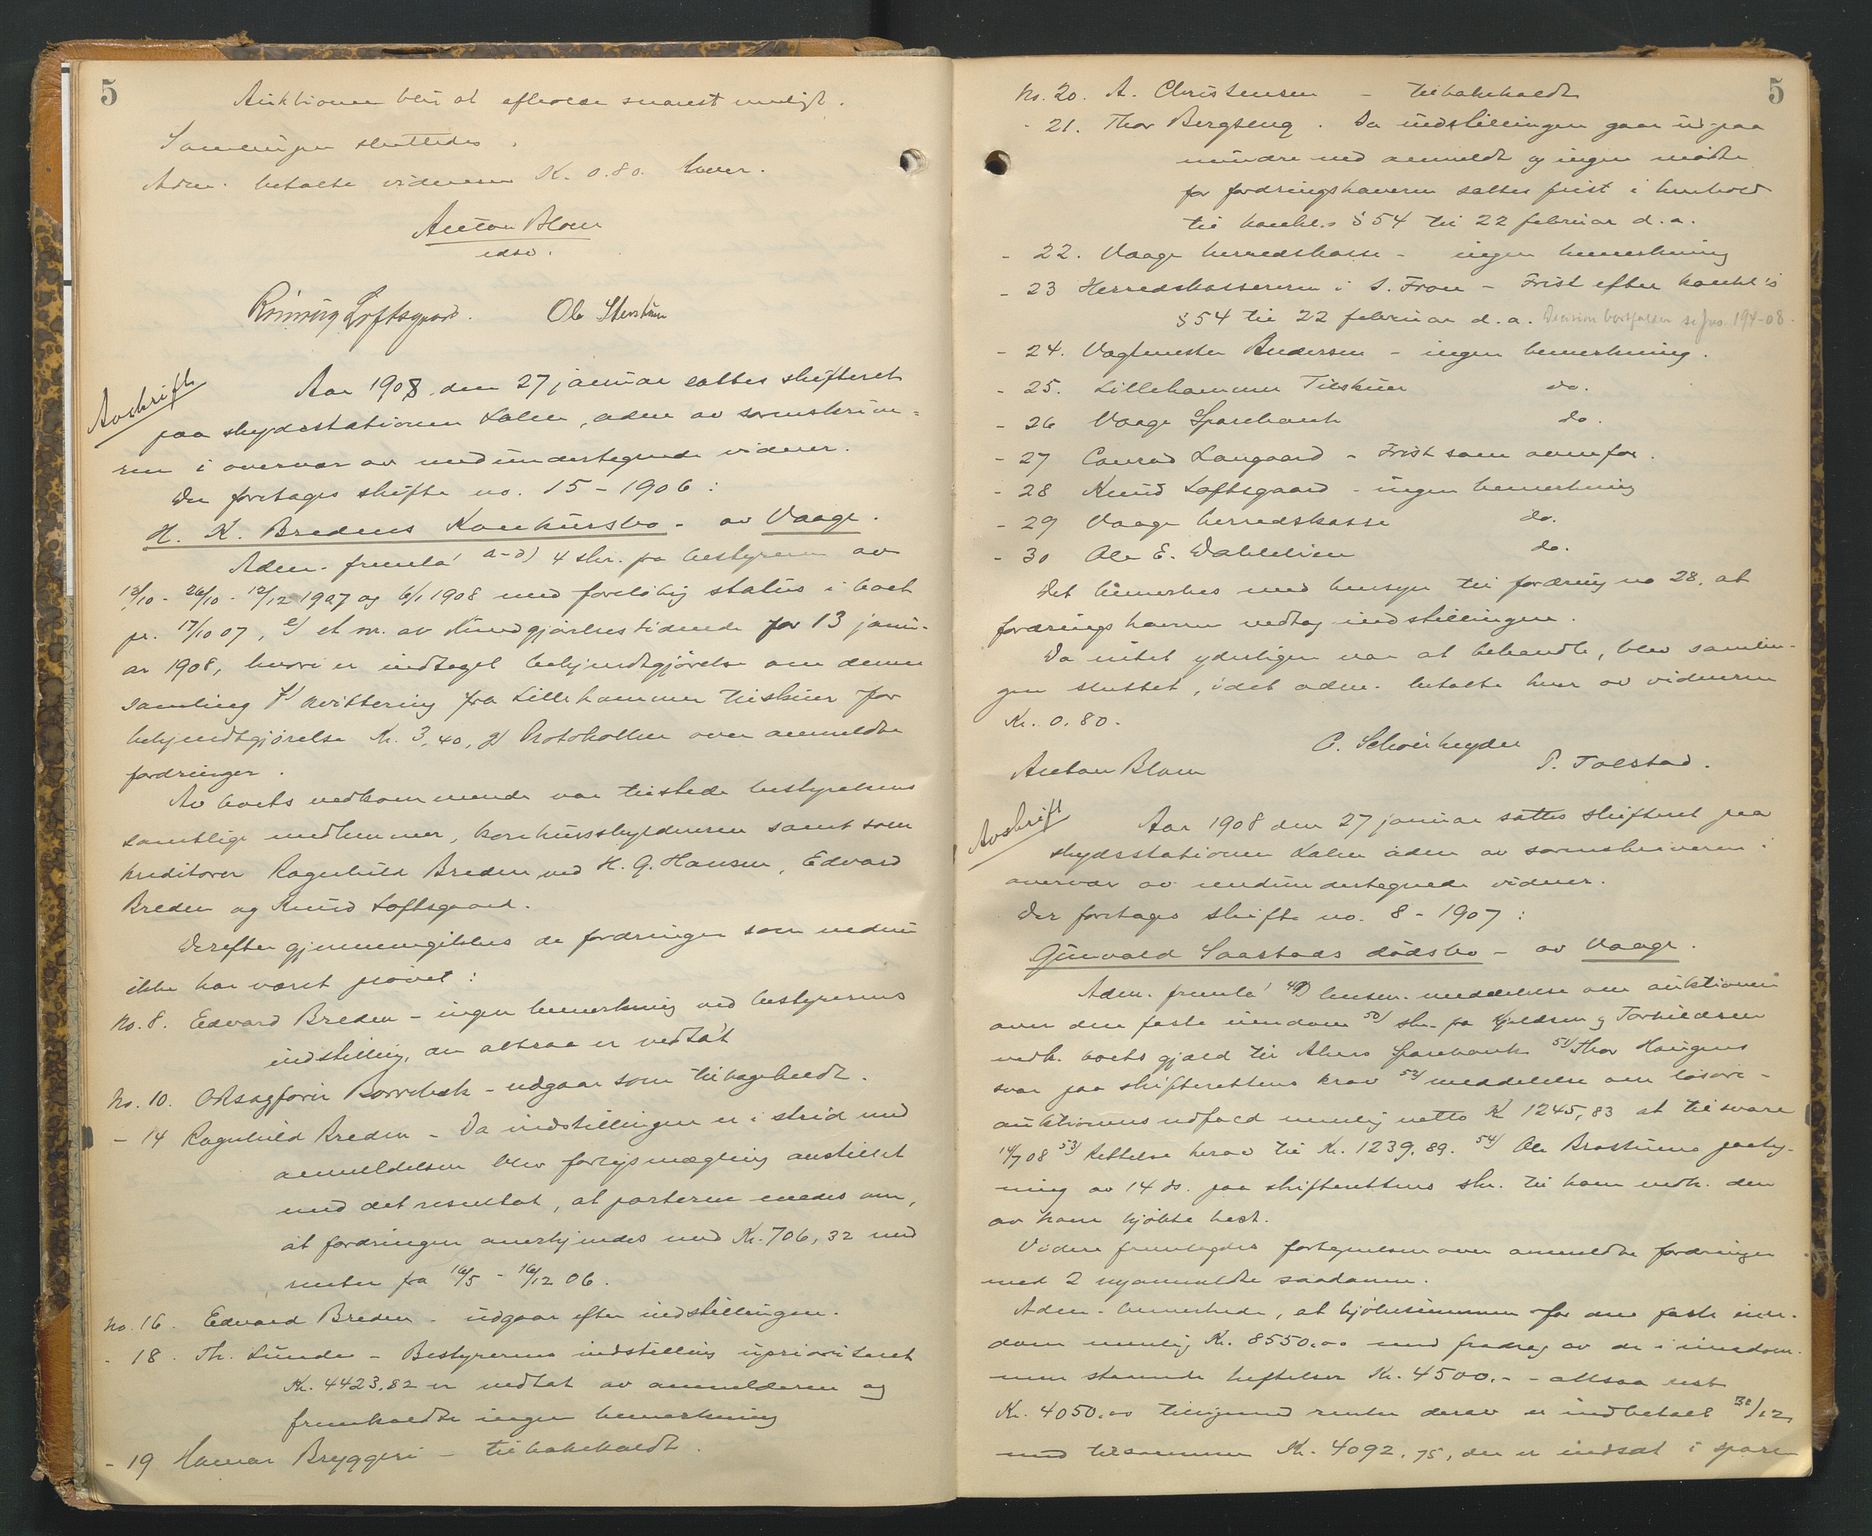 5
Auktionen blir at afholde snarest muligt.
Samlingen sluttedes.
Adm. betalte vidnerne K. 0.80 hver.
Anton Blom
edsv.
Rønnug Loftsgaard. Ole Stenstuen
Avskrift
Aar 1908, den 27 januar sattes skifteret
paa skydsstationen Kalen, adm. av sorenskrive-
ren i overvær av medundertegnede vidner.
Der foretages skifte no. 15-1906:
H. K. Bredens Konkursbo - av Vaage.
Adm. fremla' a-d) 4 skr. fra bestyreren av
12/10 - 26/10 - 12/12 1907 og 6/1 1908 med foreløbig status i boet
pr. 17/10 07, e) et nr. av Kundgjørelsestidende for 13 janu-
ar 1908, hvori er indtaget bekjendtgjørelse om denne
samling f) kvittering fra Lillehammer tilskuer for
bekjendtgjørelse Kr. 3,40, g) Protokollen over anmeldte
fordringer.
Av boets vedkommende var tilstede bestyrelsens
samtlige medlemmer, konkursskyldneren samt som
kreditorer Ragnhild Breden ved H. G. Hansen, Edvard
Breden og Knud Loftsgaard.
Derefter gjennemgikkes de fordringer som endnu
ikke har været prøvet:
No. 8. Edvard Breden - ingen bemerkning ved bestyrerens
indstilling, der altsaa er vedtat
No. 10. O Rsagfører Borrebæk - utgaar som tilbageholdt.
- 14 Ragnhild Breden - Da indstillingen er i strid med
anmeldelsen blev forligsmægling anstillet
med det resultat, at parterne enedes om,
at fordringen anerkjendes med Kr. 706,32 med
renter fra 16/5 - 16/12 06.
No. 16. Edvard Breden - udgaar efter indstillingen.
- 18. Th. Lunde - Bestyrerens indstilling uprioriteret
Kr. 4423,82 er vedtat av anmelderen og
fremkaldte ingen bemerkning
- 19 Hamar Bryggeri - tilbakekaldt.
5
No. 20. A. Christensen - tilbakekaldt
- 21. Thor Bergseng. Da indstillingen gaar ud paa
mindre end anmeldt og ingen møtte
for fordringshaveren sattes frist i henhold
til konkl.s § 54 til 22 februar d.a.
- 22. Vaage herredskasse - ingen bemerkning
- 23 Herredskassereren i S. Fron - Frist efter konkl's
§ 54 til 22 februar d.a. Decision bortfalder se jno. 194-08.
- 24. Vagtmester Andersen - ingen bemerkning.
- 25. Lillehammer Tilskuer do.
- 26 Vaage Sparebank do.
- 27 Conrad Langaard - Frist som ovenfor.
- 28 Knud Loftsgaard - ingen bemerkning
- 29 Vaage herredskasse do.
- 30 Ole E. Dahllien do.
Det bemerkes med hensyn til fordring no 28, at
fordringshaveren vedtog indstillingen.
Da intet yderligere var at behandle, blev samlin-
gen sluttet, idet adm. betalte hver av vidnerne
Kr. 0.80.
C. Schønheyder
Anton Blom P. Tolstad.
Avskrift
Aar 1908 den 27 januar sattes skifteret paa
skydsstationen Kalen adm. av sorenskriveren i
overvær av medundertegnede vidner.
Der foretages skifte no. 8-1907:
Gunvald Saastads dødsbo - av Vaage.
Adm. fremla' 49) lensm. meddelelse om auktionen
over den faste eiendom 50) skr. fra Kjeldsen & Torkildsen
vedk. boets gjæld til Akers Sparebank 51) Thor Haugens
svar paa skifterettens krav 52) meddelelse om løsøre-
auktionens udfald nemlig netto K 1245,83 at tilsvare
14/7 08 53) Rettelse herav til Kr. 1239,89. 54) Ole Brostuens paateg-
ning av 14 ds. paa skifterettens skr. til ham vedk. den
av ham kjøpte hest.
Videre fremlagdes fortegnelsen over anmeldte fordringer
med 2 nyanmeldte saadanne.
Adm. bemerkede, at kjøbesummen for den faste eien-
dom nemlig Kr. 8550,00 med fradrag av de i eiendom-
men staaende heftelser Kr. 4500.- - altsaa rest
Kr. 4050,00 tilligemed renter derav er indbetalt 30/12
med tilsammen Kr. 4092,75, der er indsat i spare